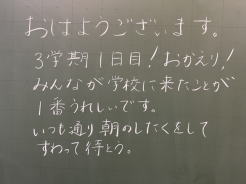 おはようございます。
3学期1日目!おかえり!
みんなが学校に来たことが
1番うれしいです。
いつも通り朝のしたくをして
すわって待とう。